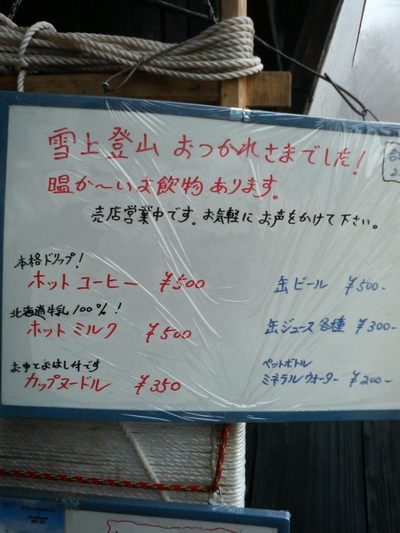 雪上登山 おつかれさまでした!
暖か〜いお飲物あります。
売店営業中です。お気軽にお声をかけて下さい。
本格ドリップ!
ホットコーヒー ¥500
北海道牛乳100%!
ホットミルク ¥500
お湯とおはし付です
カップヌードル ¥350
缶ビール ¥500-
缶ジュース各種 ¥300-
ペットボトル
ミネラルウォーター ¥200-